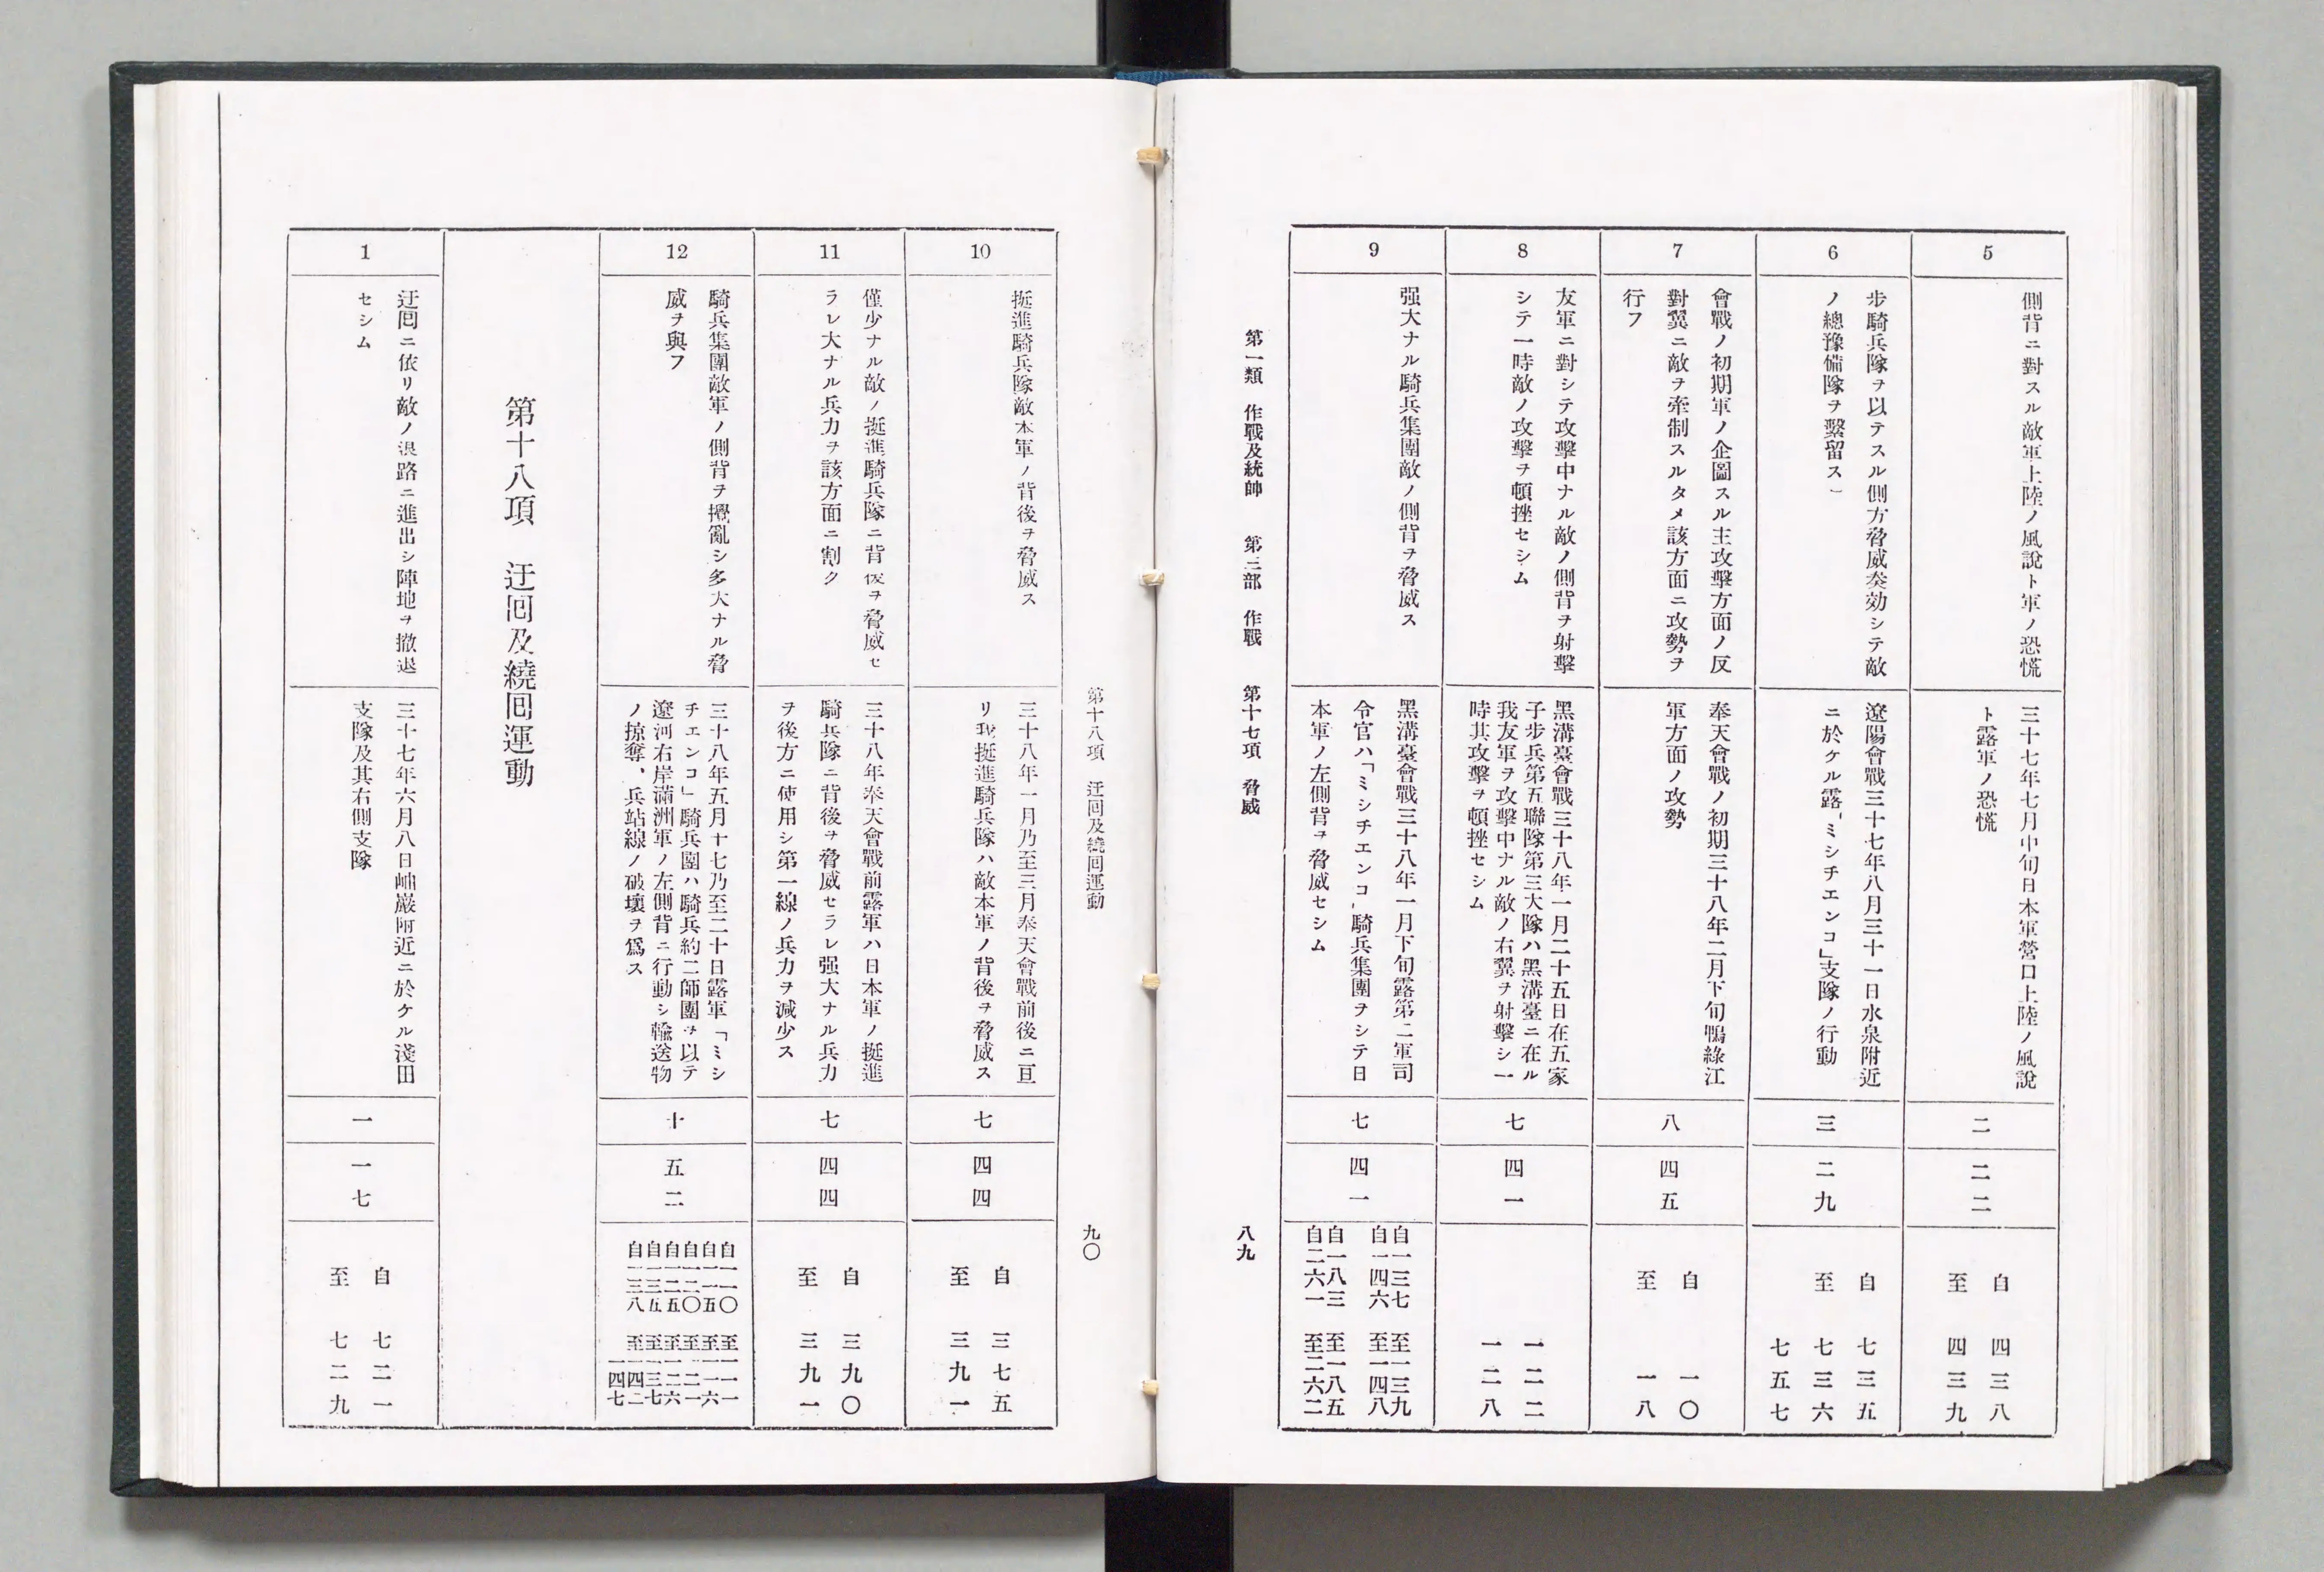 5
側背ニ對スル敵軍上陸ノ風說ト軍ノ恐慌
三十七年七月中旬日本軍營口上陸ノ風說
ト露軍ノ恐慌
二
二二
自 四三八
至 四三九
6
步騎兵隊ヲ以テスル側方脅威奏効シテ敵
ノ總豫備隊ヲ繫留ス
遼陽會戰三十七年八月三十一日水泉附近
ニ於ケル露「ミシチエンコ」支隊ノ行動
三
二九
自 七三五
至 七三六
七五七
7
會戰ノ初期軍ノ企圖スル主攻擊方面ノ反
對翼ニ敵ヲ牽制スルタメ該方面ニ攻勢ヲ
行フ
奉天會戰ノ初期三十八年二月下旬鴨綠江
軍方面ノ攻勢
八
四五
自 一〇
至 一八
8
友軍ニ對シテ攻擊中ナル敵ノ側背ヲ射擊
シテ一時敵ノ攻擊ヲ頓挫セシム
黑溝臺會戰三十八年一月二十五日在五家
子步兵第五聯隊第三大隊ハ黑溝臺ニ在ル
我友軍ヲ攻擊中ナル敵ノ右翼ヲ射擊シ一
時其攻擊ヲ頓挫セシム
七
四一
一二二
一二八
9
强大ナル騎兵集團敵ノ側背ヲ脅威ス
黑溝臺會戰三十八年一月下旬露第二軍司
令官ハ「ミシチエンコ」騎兵集團ヲシテ日
本軍ノ左側背ヲ脅威セシム
七
四一
自一三七 至一三九
自一四六 至一四八
自一八三 至一八五
自二六一 至二六二
第一類 作戰及統帥 第三部 作戰 第十七項 脅威
八九
第十八項 迂囘及繞囘運動
九〇
10
挺進騎兵隊敵本軍ノ背後ヲ脅威ス
三十八年一月乃至三月奉天會戰前後ニ亘
リ我挺進騎兵隊ハ敵本軍ノ背後ヲ脅威ス
七
四四
自 三七五
至 三九一
11
僅少ナル敵ノ挺進騎兵隊ニ背後ヲ脅威セ
ラレ大ナル兵力ヲ該方面ニ割ク
三十八年奉天會戰前露軍ハ日本軍ノ挺進
騎兵隊ニ背後ヲ脅威セラレ强大ナル兵力
ヲ後方ニ使用シ第一線ノ兵力ヲ減少ス
七
四四
自 三九〇
至 三九一
12
騎兵集團敵軍ノ側背ヲ攪亂シ多大ナル脅
威ヲ與フ
三十八年五月十七乃至二十日露軍「ミシ
チエンコ」騎兵團ハ騎兵約二師團ヲ以テ
遼河右岸滿洲軍ノ左側背ニ行動シ輸送物
ノ掠奪、兵站線ノ破壞ヲ爲ス
十
五二
自一一〇 至一一一
自一一五 至一一六
自一二〇 至一二一
自一二五 至一二六
自一三五 至一三七
自一三八 至一四二
一四七
第十八項 迂囘及繞囘運動
1
迂囘ニ依リ敵ノ退路ニ進出シ陣地ヲ撤退
セシム
三十七年六月八日岫巖附近ニ於ケル淺田
支隊及其右側支隊
一
一七
自 七二一
至 七二九